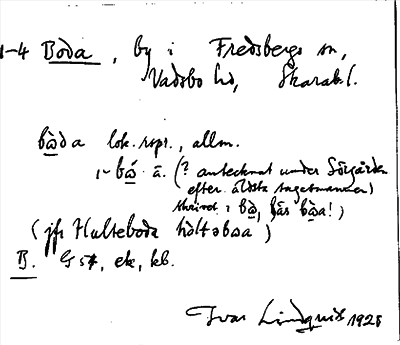 1-4 Boda, by i Fredsbergs sn,
Vadsbo hd, Skarab. l.
bò̱da lok. rspr., allm.
bó̱ ä. (? antecknat under Sörgården
efter äldsta sagesmannen)
i bò̱, bò̱a!)
(jfr Hulteboda hùltəbo̱a)
B. G 54, ek, kb.
Ivar Lindquist 1928